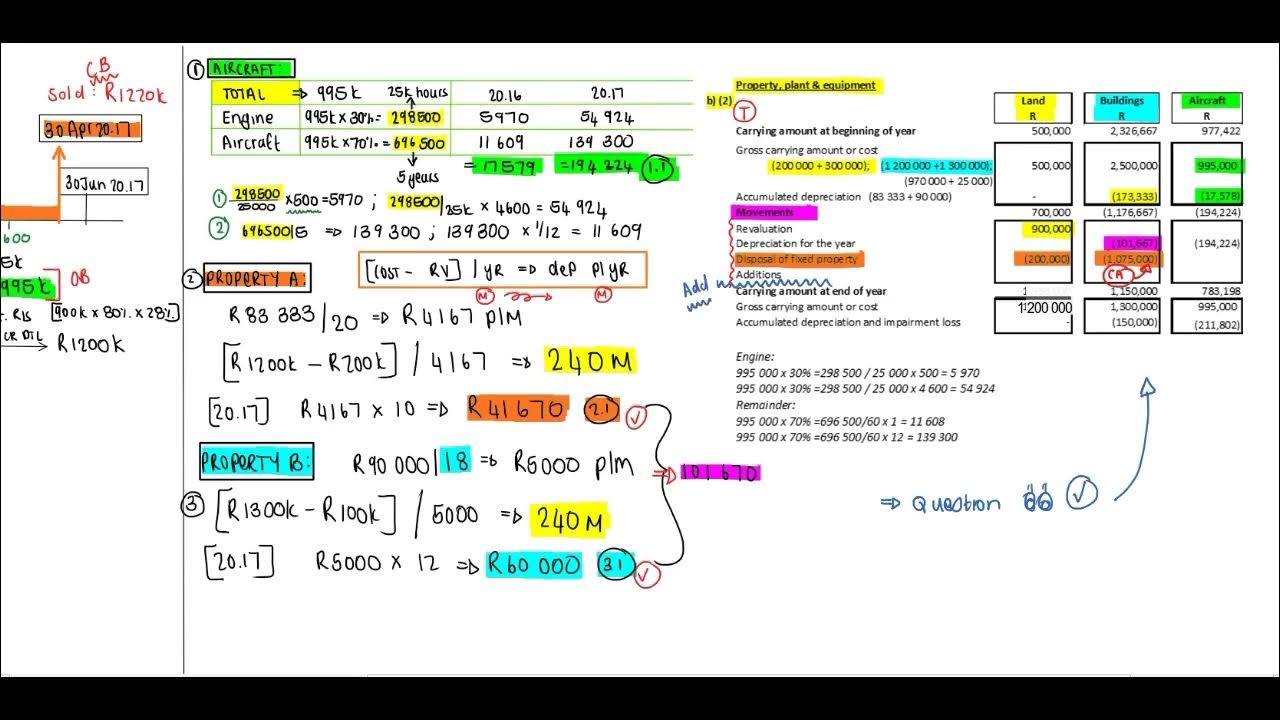 CB
Sold : R1220k
30 Apr 20.17
30 Jun 20.17
600
5k
995k OB
[900k x 80% x 28%]
CR DTL
→ R1200k
① AIRCRAFT:
TOTAL ⇒ 995k 25k hours 20.16 20.17
Engine 995k x 30% = 298500 5970 54 924
Aircraft 995k x 70% = 696 500 11 609 139 300
5 years = 17579 = 194 224 1.1
① 298500/25000 x 500 = 5970 ; 298500/25k x 4600 = 54 924
② 696500/5 ⇒ 139 300 ; 139 300 x 1/12 = 11 609
② PROPERTY A: [COST - RV] / YR ⇒ dep P/YR
M M
R83 333/20 ⇒ R4167 P/M
[R1200k - R200k] / 4167 ⇒ 240 M
[20.17] R4167 x 10 ⇒ R41 670 2.1 ✓
PROPERTY B: R90 000/18 ⇒ R5000 P/M ⇒ 101 670
③ [R1300k - R100k] / 5000 ⇒ 240 M
[20.17] R5000 x 12 ⇒ R60 000 3.1 ✓
Property, plant & equipment
b) (2) Land Buildings Aircraft
T R R R
Carrying amount at beginning of year 500,000 2,326,667 977,422
Gross carrying amount or cost
(200 000 + 300 000); (1 200 000 +1 300 000); 500,000 2,500,000 995,000
(970 000 + 25 000)
Accumulated depreciation (83 333 + 90 000) - (173,333) (17,578)
Movements 700,000 (1,176,667) (194,224)
Revaluation 900,000
Depreciation for the year (101,667) (194,224)
Disposal of fixed property (200,000) (1,075,000)
Additions CA
Add
Carrying amount at end of year 1,150,000 783,198
Gross carrying amount or cost 1 200 000 1,300,000 995,000
Accumulated depreciation and impairment loss - (150,000) (211,802)
Engine:
995 000 x 30% =298 500 / 25 000 x 500 = 5 970
995 000 x 30% =298 500 / 25 000 x 4 600 = 54 924
Remainder:
995 000 x 70% =696 500/60 x 1 = 11 608
995 000 x 70% =696 500/60 x 12 = 139 300
⇒ Question ✓